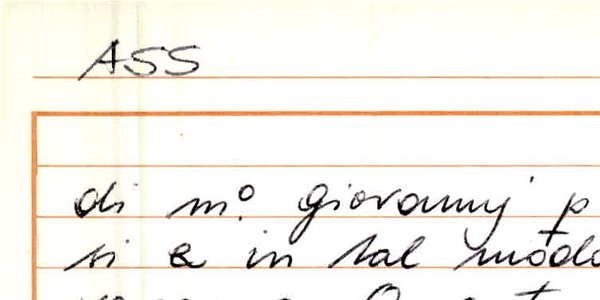 ASS
di m.º giovannj p
si è in tal modo